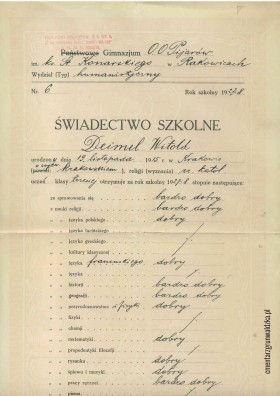 Państwowe Gimnazjum OO Pijarów
im. ks. St. Konarskiego w Rakowicach
Wydział (Typ) humanistyczny
Nr. 6 Rok szkolny 1927/8
ŚWIADECTWO SZKOLNE
Deimel Witold
urodzony dnia 13 listopada 1915 r. w Krakowie
krakowskiem), religji (wyznania) rz. katol.
uczeń klasy pierwszej otrzymuje za rok szkolny 1927/8 stopnie następujące:
ze sprawowania się bardzo dobry
z nauki religji bardzo dobry
języka polskiego dobry
języka łacińskiego
języka greckiego
kultury klasycznej
języka francuskiego dobry
języka
historji bardzo dobry
geografji bardzo dobry
przyrodoznawstwa z fizyką dobry
fizyki
chemji
matematyki dobry
propedeutyki filozofji
rysunku dobry
śpiewu i muzyki dobry
pracy ręcznej bardzo dobry
cmentarzgrunwaldzka.pl